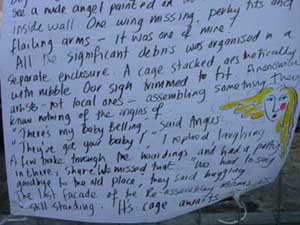 see a nude angel painted on
inside wall. One wing missing, perky tits and
flailing arms – It was one of mine!
All the significant debris was organised in a
separate enclosure. A cage stacked aesthetically
with rubble. Our sign trimmed to fit. Anonymous
artists – not local ones – assembling something they
know nothing of the origins of
"There's my Baby Belling", said Angus.
"They've got your baby!", I replied laughing
A few broke through the hoardings and had a party
in there, shame we missed that. "We had to say
goodbye to the old place", they said hugging
The last facade of the Re-assembly rooms
still standing. It's cage awaits